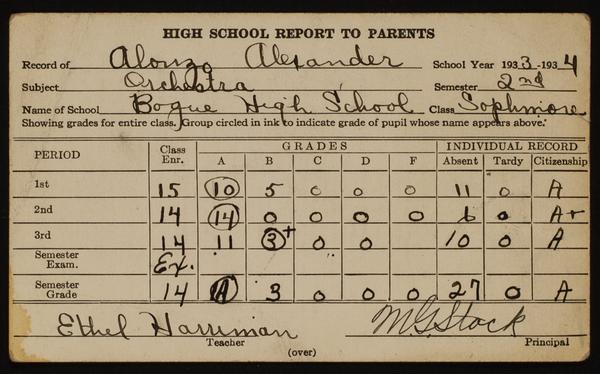 HIGH SCHOOL REPORT TO PARENTS
Record of Alonzo Alexander School Year 1933-1934
Subject Orchestra Semester 2nd
Name of School Bogue High School Class Sophmore
Showing grades for entire class. Group circled in ink to indicate grade of pupil whose name appears above.
PERIOD Class Enr. GRADES INDIVIDUAL RECORD
A B C D F Absent Tardy Citizenship
1st 15 10 5 0 0 0 11 0 A
2nd 14 14 0 0 0 0 6 0 A+
3rd 14 11 3+ 0 0 10 0 A
Semester Exam. Ex.
Semester Grade 14 A 3 0 0 0 27 0 A
Ethel Harriman M.G. Stock
Teacher Principal
(over)